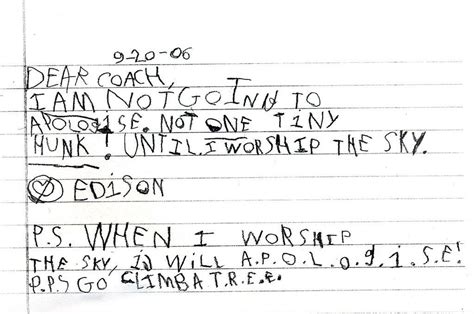 9-20-06
DEAR COACH,
I AM NOT GOINN TO
APOLOGISE. NOT ONE TINY
HUNK! UNTIL I WORSHIP THE SKY.
EDISON
P.S. WHEN I WORSHIP
THE SKY, I WILL A.P.O.L.O.g.i.S.E!
P.P.S GO CLIMB A T.R.E.E.